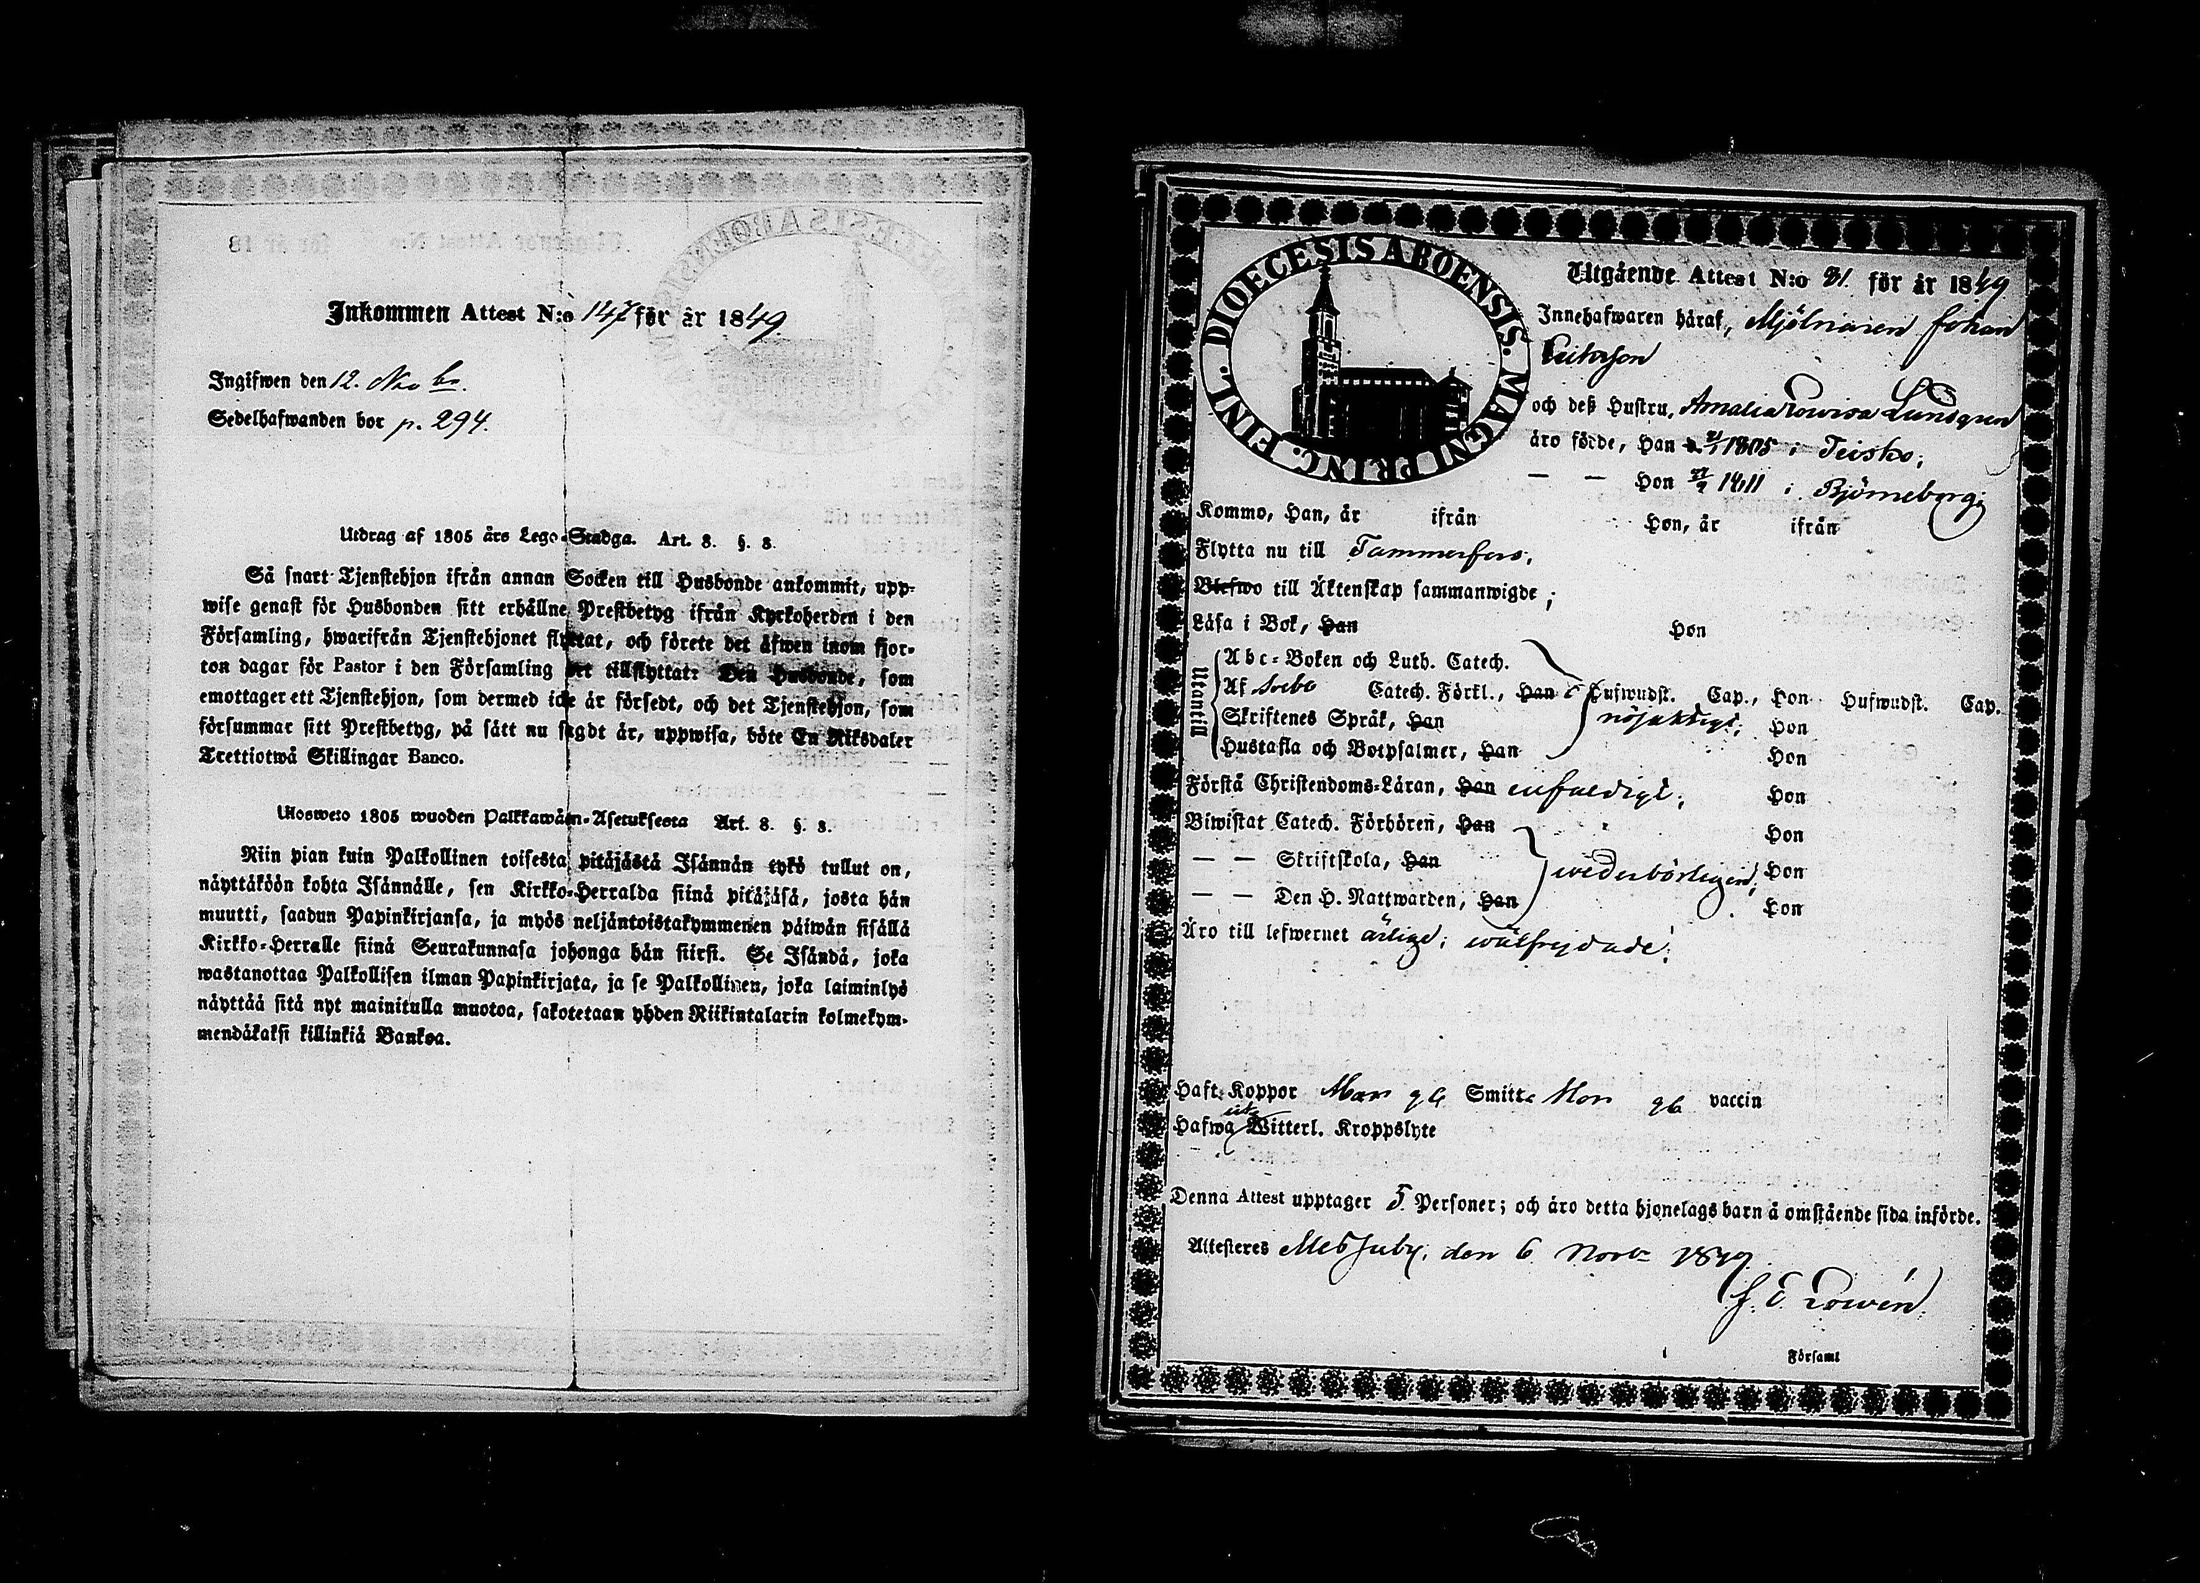 Inkommen Attest N:o 147 för år 1849.
Ingifwen den 12. Novbr.
Sedelhafwanden bor p. 294.
Utdrag af 1805 års Lego-Stadga. Art. 8. §. 8.
Så snart Tjenstehjon ifrån annan Socken till Husbonde ankommit, upp-
wise genast för Husbonden sitt erhållne Prestbetyg ifrån Kyrkoherden i den
Församling, hwarifrån Tjenstehjonet flyttat, och förete det äfwen inom fjor-
ton dagar för Pastor i den Församling det tillflyttat: Den Husbonde, som
emottager ett Tjenstehjon, som dermed icke är försedt, och det Tjenstehjon, som
försummar sitt Prestbetyg, på sätt nu sagdt är, uppwisa, böte En Riksdaler
Trettiotwå Skillingar Banco.
Ulosweto 1805 wuoden Palkkawäen-Asetuksesta Art. 8. §. 8.
Niin pian kuin Palkollinen toisesta pitäjästä Isännän tykö tullut on,
näyttäköön kohta Isännälle, sen Kirkko-Herralda siinä pitäjäsä, josta hän
muutti, saadun Papinkirjansa, ja myös neljäntoistakymmenen päiwän sisällä
Kirkko-Herralle siinä Seurakunnasa johonga hän siirsi. Se Isändä, joka
wastanottaa Palkollisen ilman Papinkirjata, ja se Palkollinen, joka laiminlyö
näyttää sitä nyt mainitulla muotoa, sakotetaan yhden Riikintalarin kolmekym-
mendäkaksi killinkiä Bankoa.
DIOECESIS ABOENSIS. MAGNI PRINC. FINL.
Utgående Attest N:o 31 för år 1849
Innehafwaren häraf, Mjölnaren Johan
och deß Hustru, Amalia Lovisa Lundgren
äro födde, Han 1805 i Teisko;
— — Hon 1811 i Björneborg;
Kommo, Han, år ifrån Hon, år ifrån
Flytta nu till Tammerfors;
Blefwo till Äktenskap sammanwigde;
Läsa i Bok, Han Hon
Utantill
Abc-Boken och Luth. Catech.
Af Svebo Catech. Förkl., Han Hufwudst. Cap., Hon Hufwudst. Cap.
Skriftenes Språk, Han nöjaktigt; Hon
Hustafla och Botpsalmer, Han Hon
Förstå Christendoms-Läran, Han enfaldigt; Hon
Biwistat Catech. Förhören, Han Hon
— — Skriftskola, Han wederbörligen; Hon
— — Den H. Nattwarden, Han Hon
Äro till lefwernet ärlige; wälfrejdade;
Haft: Koppor Man Smitt: vaccin
Hafwa Witterl. Kroppslyte
Denna Attest upptager 5 Personer; och äro detta hjonelags barn å omstående sida införde.
Attesteres Messuby, den 6 Novbr 1849.
Församl